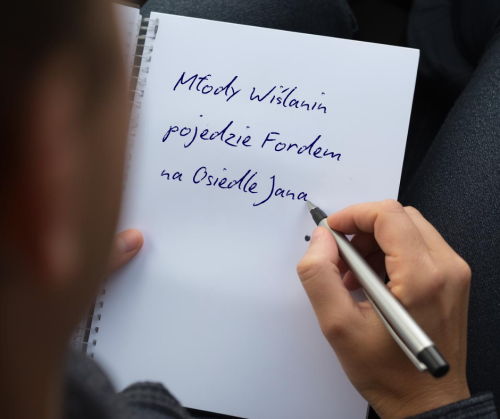 Młody Wiślanin
pojedzie Fordem
na Osiedle Jana